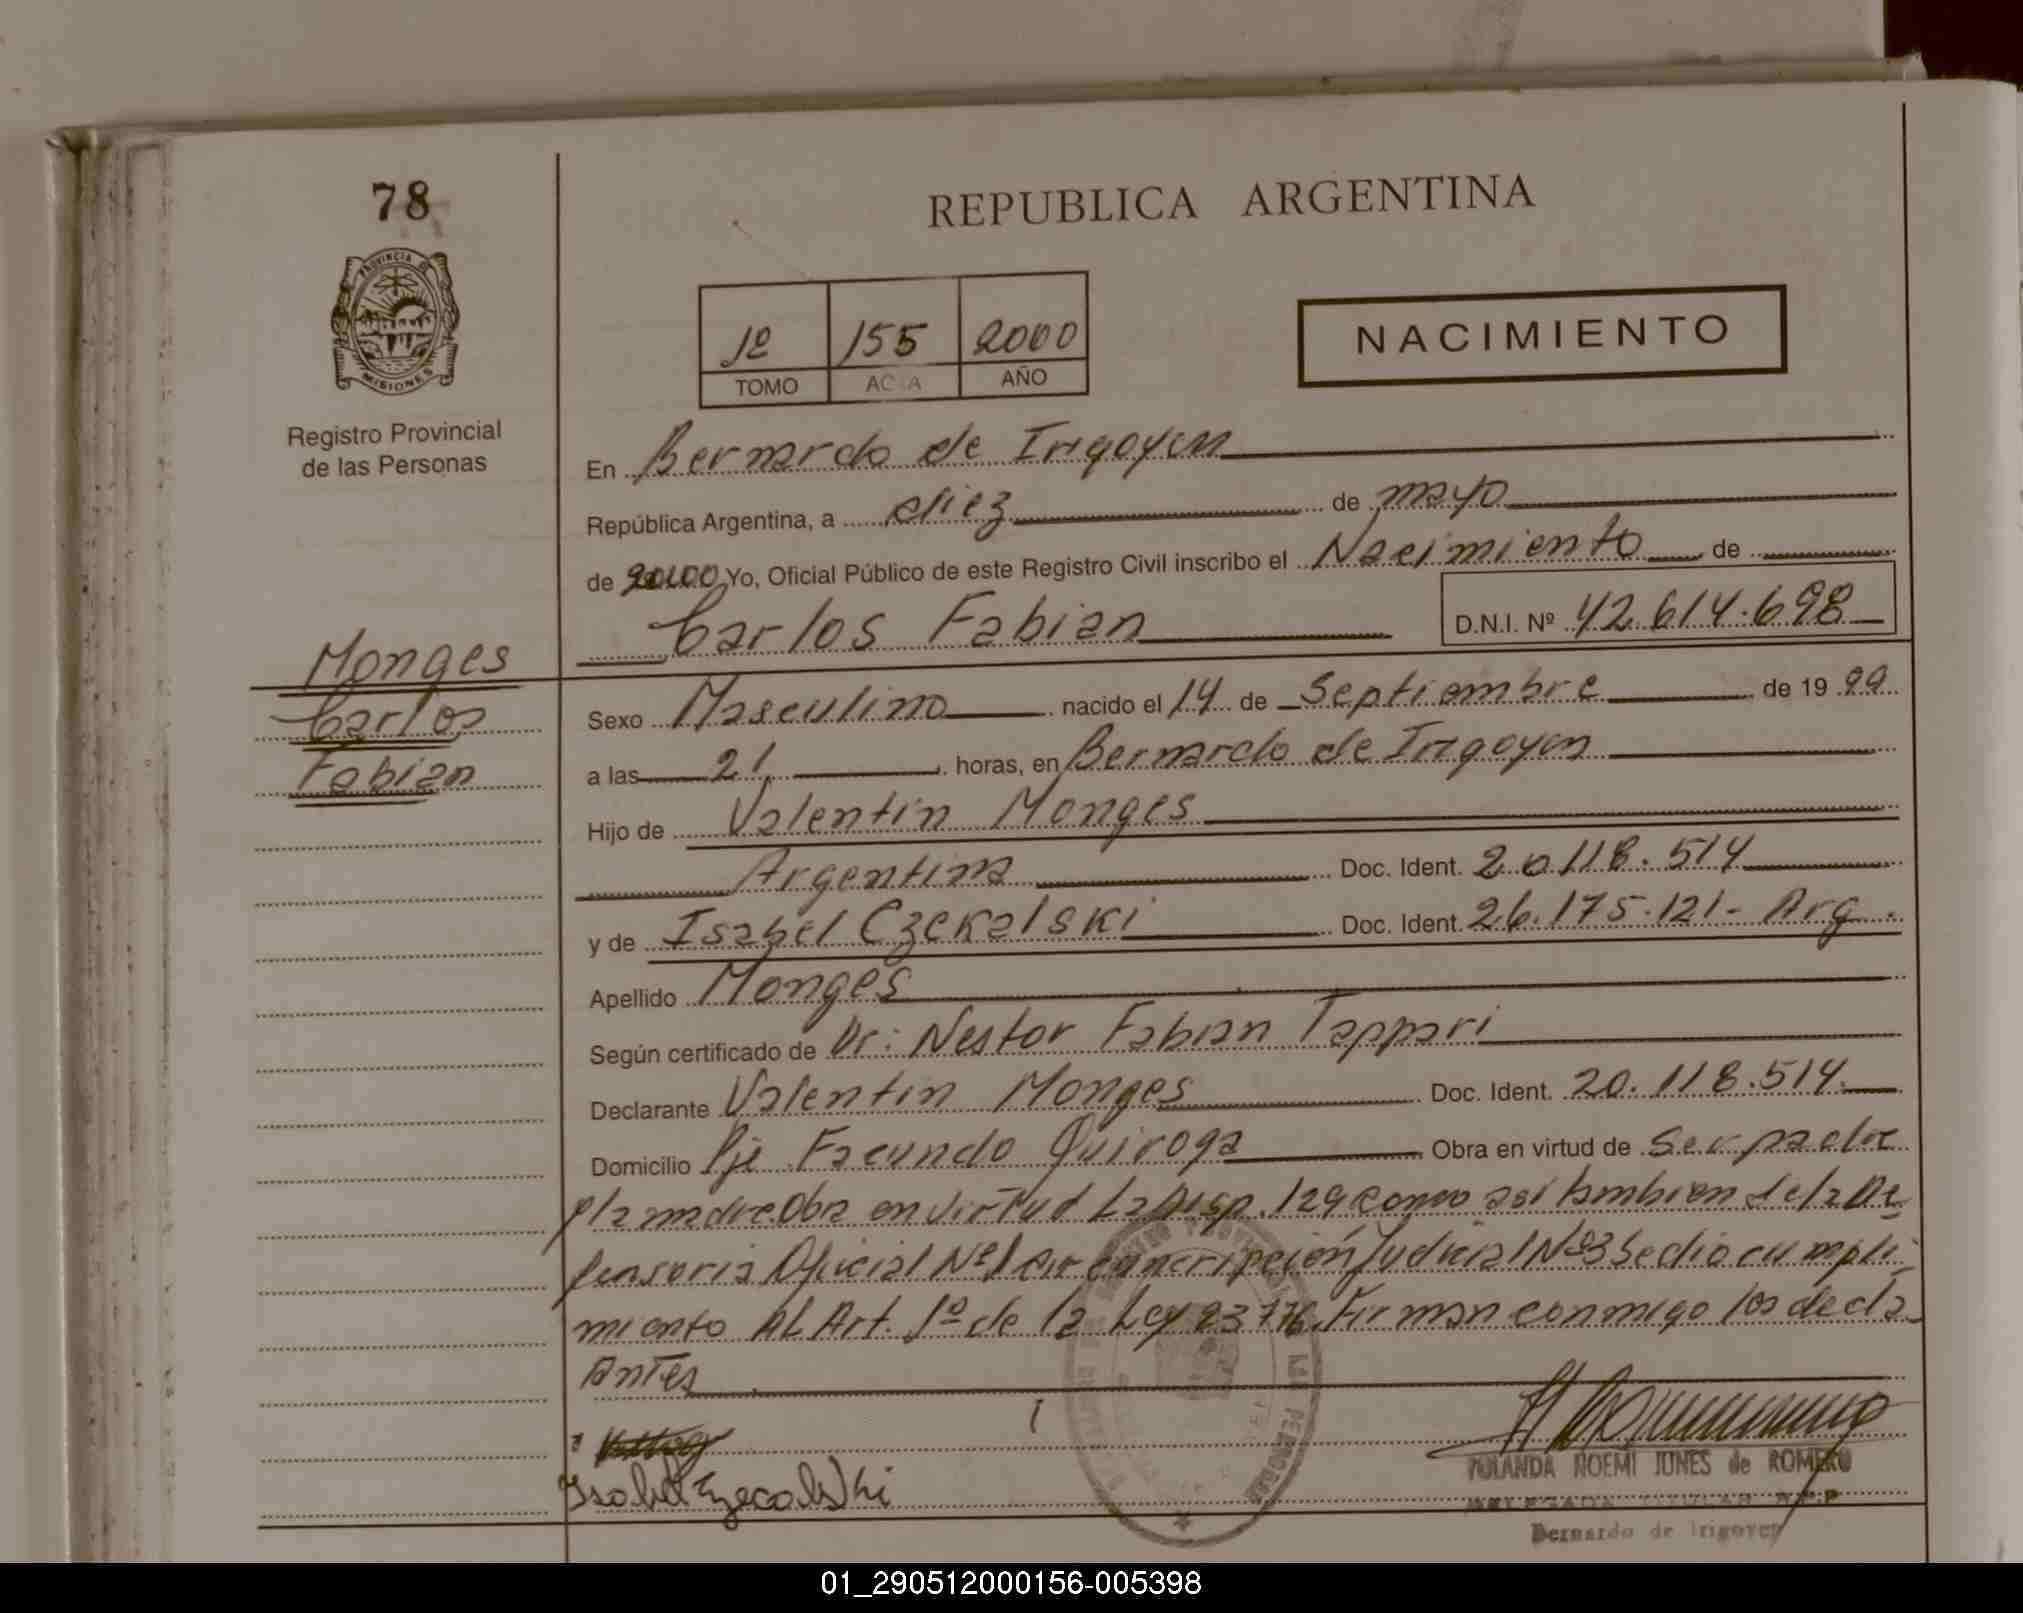 78
REPUBLICA ARGENTINA
PROVINCIA DE
MISIONES
Registro Provincial
de las Personas
1º 155 2000
TOMO ACTA AÑO
NACIMIENTO
En Bernardo de Irigoyen
República Argentina, a diez de mayo
de 2000 Yo, Oficial Público de este Registro Civil inscribo el Nacimiento de
Carlos Fabian D.N.I. Nº 42.614.698
Monges
Carlos
Fabian
Sexo Masculino nacido el 14 de Septiembre de 19 99
a las 21 horas, en Bernardo de Irigoyen
Hijo de Valentin Monges
Argentina Doc. Ident. 20.118.514
y de Isabel Czekalski Doc. Ident. 26.175.121- Arg.
Apellido Monges
Según certificado de Dr: Nestor Fabian Tappari
Declarante Valentin Monges Doc. Ident. 20.118.514.
Domicilio Pje Facundo Quiroga Obra en virtud de Ser padre
y la madre. Oba en virtud La Disp. 129 como asi tambien de la De
fensoria Oficial Nº1 Circuncripción Judicial Nº3 Se dio cumpli-
miento AL Art. 1º de la Ley 23776. Firman conmigo los decla-
Antes
Isabel Ezecalski
YOLANDA NOEMI JONES de ROMERO
DELEGADA TITULAR R.P.P
Bernardo de Irigoyen
01_290512000156-005398